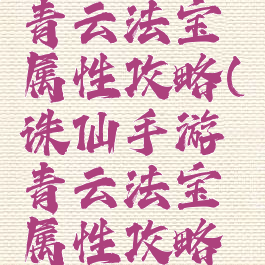 青云法宝
属性攻略(
诛仙手游
青云法宝
属性攻略